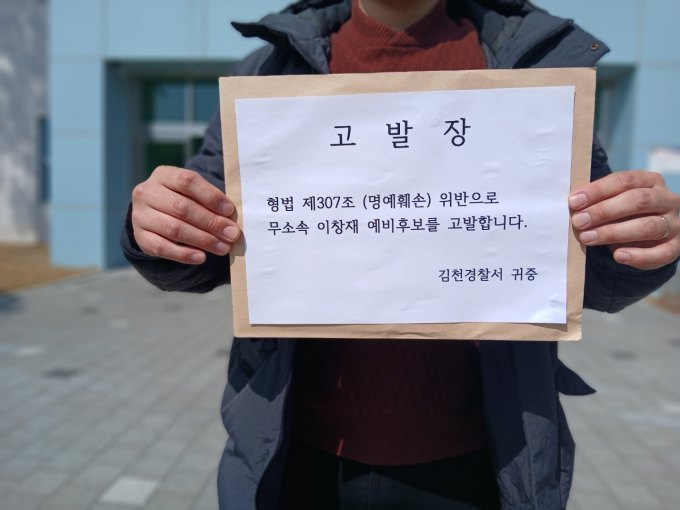 고 발 장
형법 제307조 (명예훼손) 위반으로
무소속 이창재 예비후보를 고발합니다.
김천경찰서 귀중